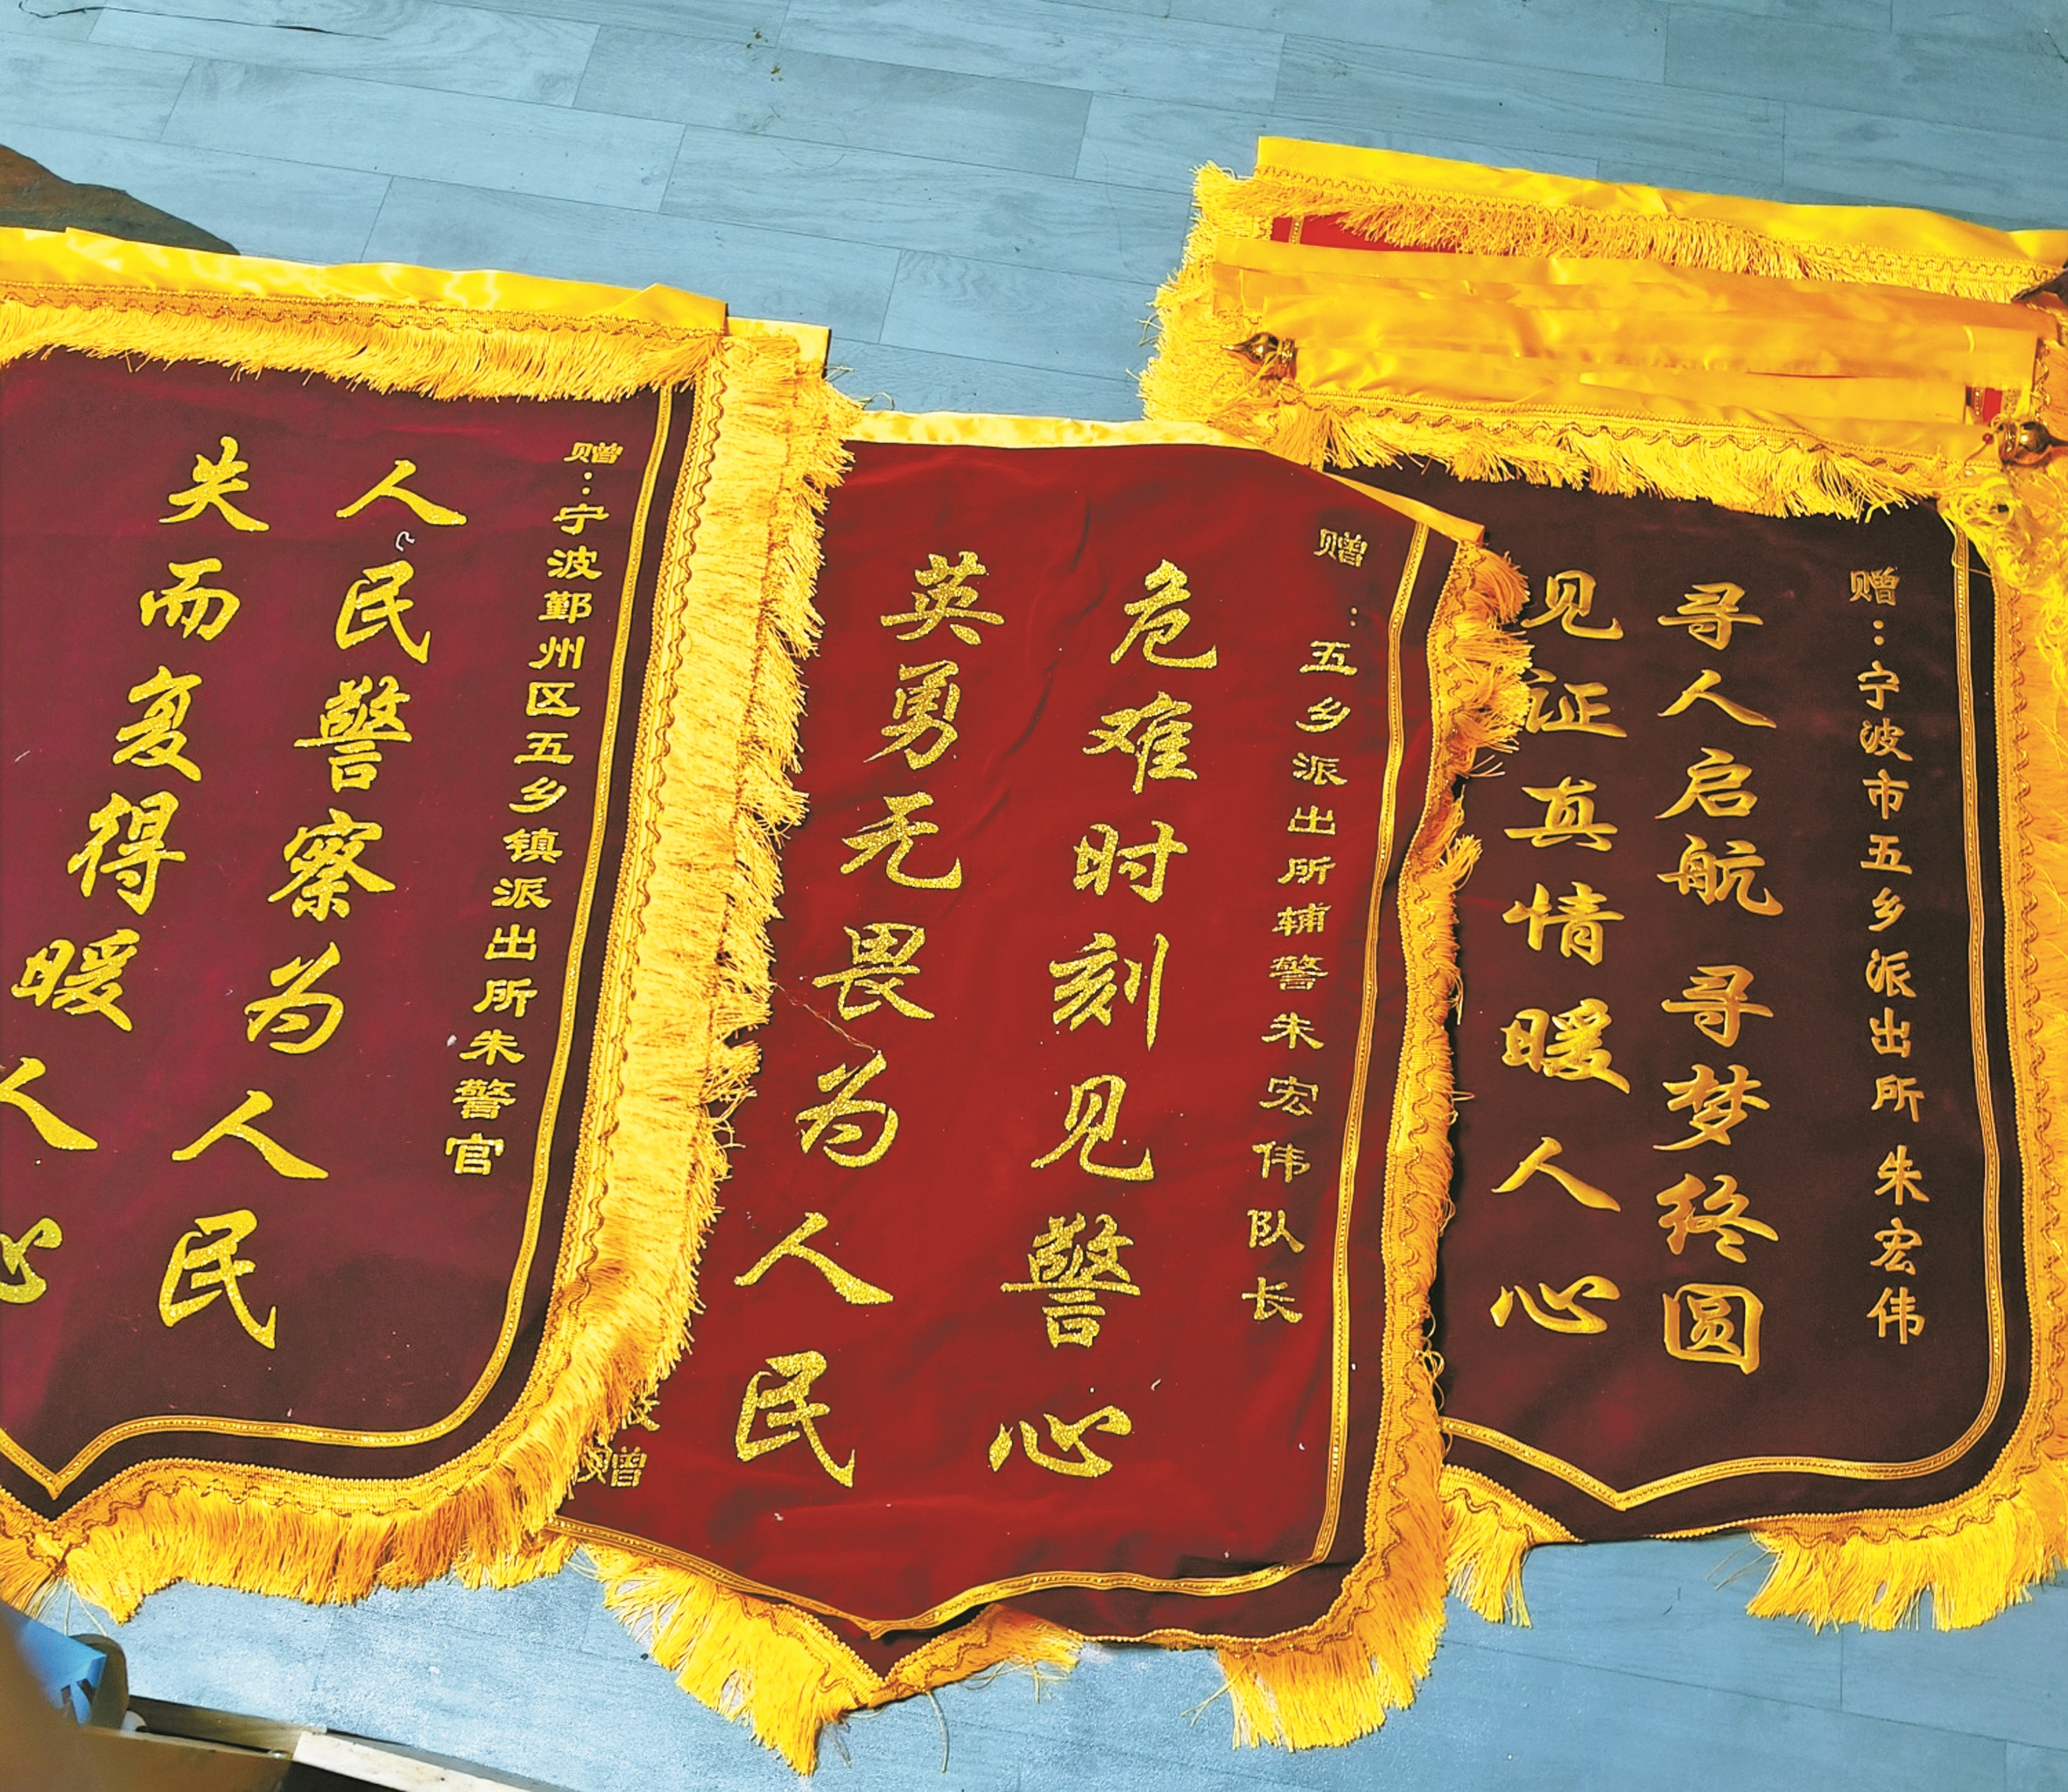 赠：宁波鄞州区五乡镇派出所朱警官
人民警察为人民
失而复得暖人心
赠：五乡派出所辅警朱宏伟队长
危难时刻见警心
英勇无畏为人民
赠
赠：宁波市五乡派出所朱宏伟
寻人启航 寻梦终圆
见证真情暖人心